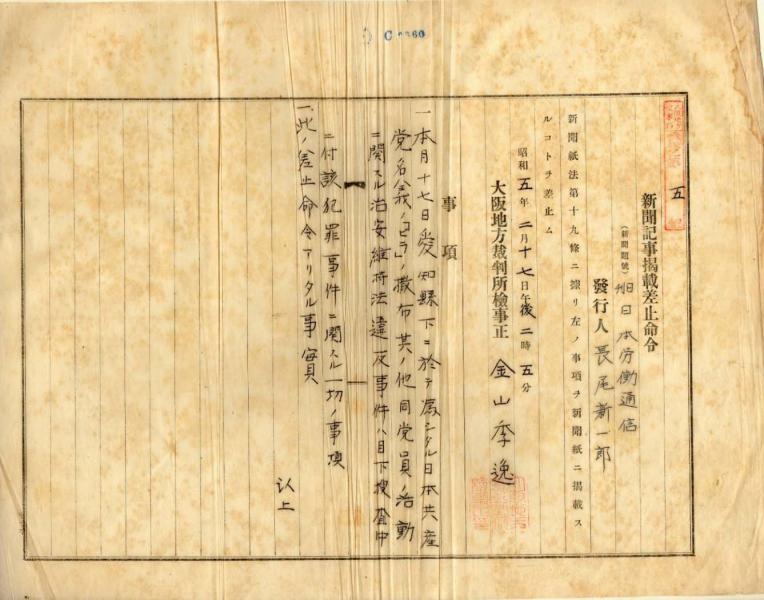 C 0260
五
新聞記事掲載差止命令
(新聞題號) 日刊日本労働通信
發行人 長尾新一郎
新聞紙法第十九條ニ據リ左ノ事項ヲ新聞紙ニ掲載ス
ルコトヲ差止ム
昭和五年二月十七日午後二時五分
大阪地方裁判所檢事正 金山季逸
事項
一、本月十七日愛知縣下ニ於テ為シタル日本共産
党名義ノ「ビラ」ノ撒布其ノ他同党員ノ活動
ニ関スル治安維持法違反事件ハ目下捜査中
ニ付該犯罪事件ニ関スル一切ノ事項
一、此ノ差止命令アリタル事實
以上